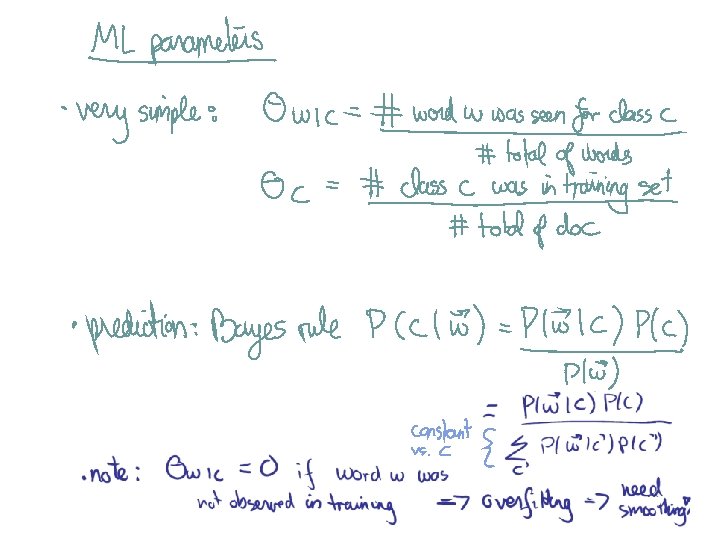 ML parameters
· very simple: Θ_{w|c} = # word w was seen for class c
# total of words
Θ_c = # class c was in training set
# total of doc
· prediction: Bayes rule P(c|w⃗) = P(w⃗|c) P(c)
P(w⃗)
= P(w⃗|c) P(c)
constant vs. c { Σ_{c'} P(w⃗|c') P(c')
· note: Θ_{w|c} = 0 if word w was
not observed in training => overfitting => need smoothing!